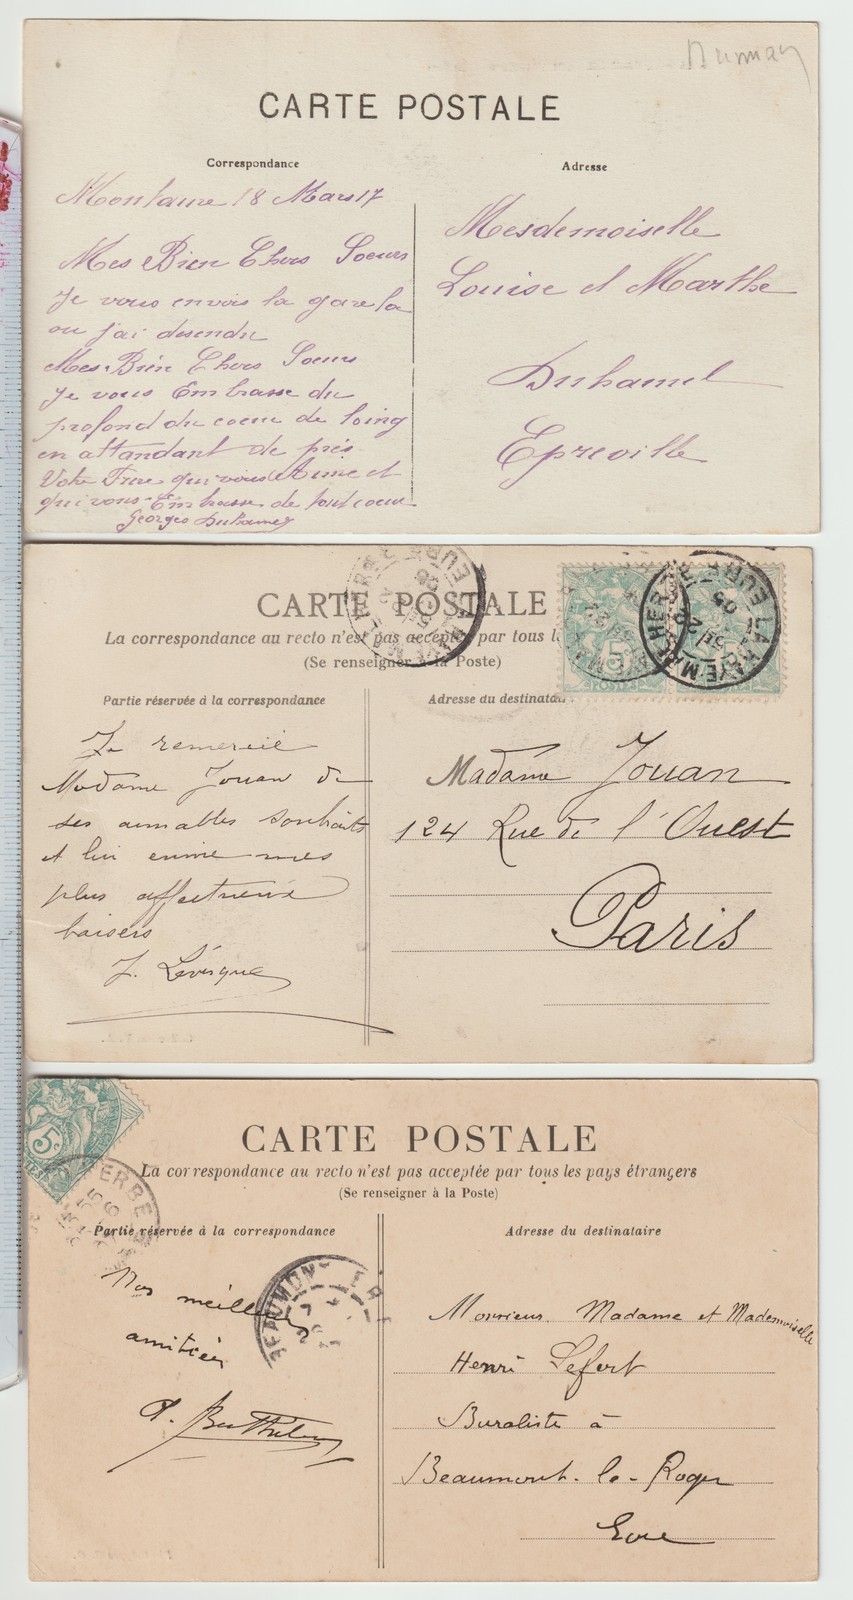 CARTE POSTALE
Correspondance
Montaure 18 Mars 17
Mes Bien Chers Soeurs
Je vous envois la gare la
ou j'ai desendu
Mes Bien Chers Soeurs
Je vous Embrasse du
profond du coeur de loing
en attandant de près
Votre Frere qui vous Aime et
qui vous Embrasse de tout coeur
Georges Duhamel
Adresse
Mesdemoiselle
Louise et Marthe
Duhamel
Epreville
CARTE POSTALE
La correspondance au recto n'est pas acceptée par tous l
(Se renseigner à la Poste)
Partie réservée à la correspondance
Je remercie
Madame Jouan de
ses aimables souhaits
et lui envoie mes
plus affectueux
baisers
J. Lévesque
Adresse du destinata
LA HAYE MALHERBE
EURE
Madame Jouan
124 Rue de l'Ouest
Paris
5
CARTE POSTALE
La correspondance au recto n'est pas acceptée par tous les pays étrangers
(Se renseigner à la Poste)
Partie réservée à la correspondance
Nos meilleures
amitiés
BEAUMONT
Adresse du destinataire
Monsieur, Madame et Mademoiselle
Henri Lefort
Buraliste à
Beaumont-le-Roger
Eure